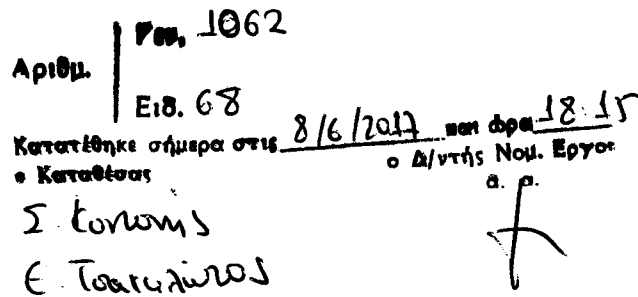 Αριθμ. Γεν. 1062
Ειδ. 68
Κατατέθηκε σήμερα στις 8/6/2017 και ώρα 18:15
ο Καταθέσας ο Δ/ντής Νομ. Εργου
α. α.
Σ. Κοντονής
Ε. Τσακαλώτος